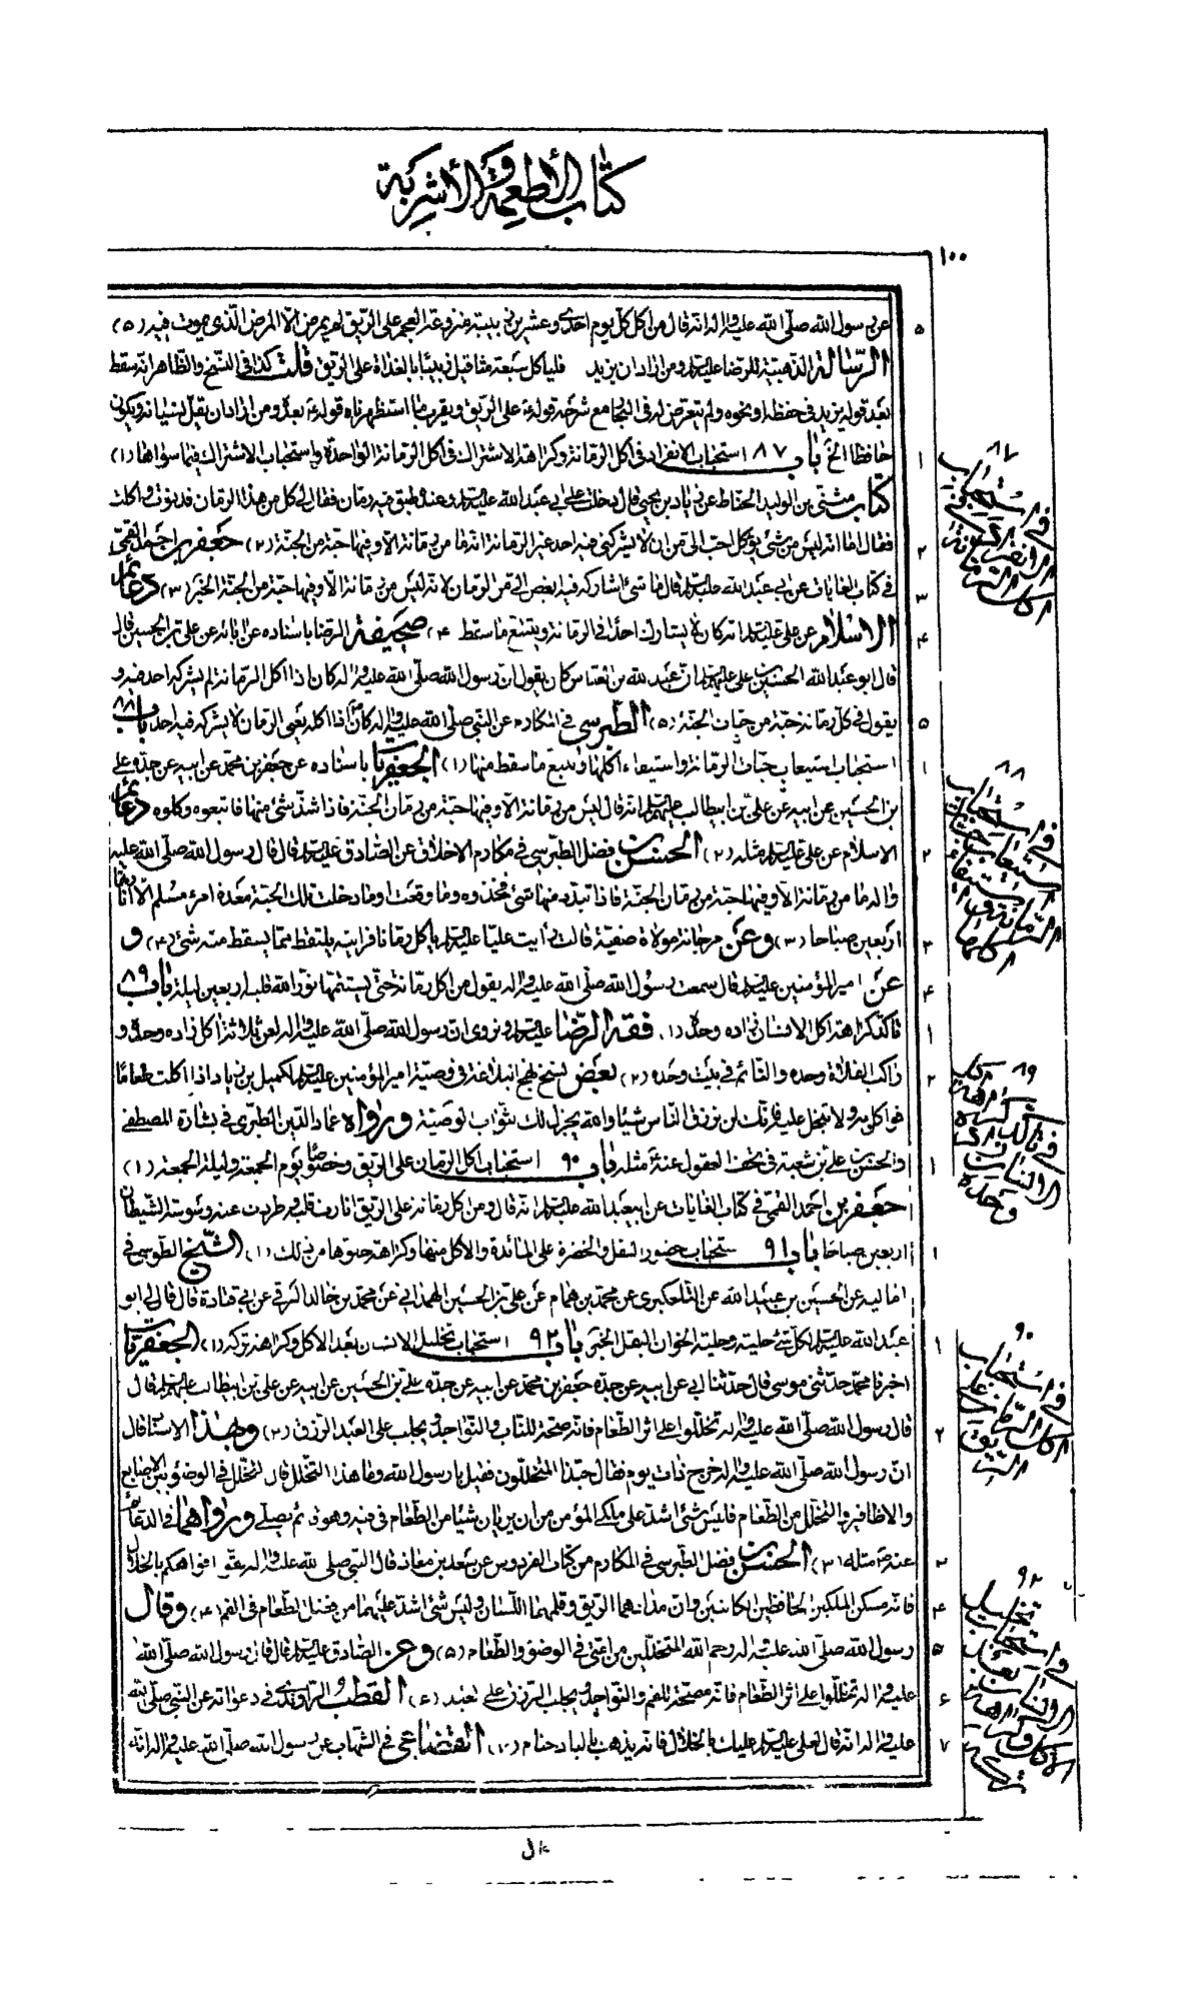 كتاب الأطعمة والأشربة
١٠٠
عن رسول الله صلى الله عليه واله انه قال من اكل كل يوم احدى وعشرين زبيبة منزوعة العجم على الريق لم يمرض الا المرض الذى يموت فيه (٥)
الرسالة الذهبية للرضا عليه السلم ومن اراد ان يزيد فلياكل سبعة مثاقيل زبيبا بالغداة على الريق قلت كذا فى النسخ والظاهر انه سقط
بعد قوله يزيد فى حفظه او نحوه ولم يتعرض له فى البحار مع شرحه قوله ع على الريق ويقرب ما استظهرناه قوله ع بعده ومن اراد ان يقل نسيانه ويكون
حافظا الخ باب ٨٧ استحباب الانفراد فى اكل الرمانة وكراهة الاشتراك فى اكل الرمانة الواحدة واستحباب الاشتراك فيما سواها (١)
كتاب مثنى بن الوليد الحناط عن زياد بن يحيى قال دخلت على ابى عبد الله عليه السلم وعنده طبق فيه رمان فقال لى كل من هذا الرمان فدنوت واكلت
فقال اما انه ليس من شئ يؤكل احب الى من ان لا يشركنى فيه احد غير الرمانة انه ما من رمانة الا وفيها حبة من الجنة (٢) جعفر بن احمد القمى
فى كتاب الغايات عن ابى عبد الله عليه السلم قال ما شئ اشارك فيه ابغض الى من الرمان لانه ليس من رمانة الا وفيها حبة من الجنة الخبر (٣) دعائم
الاسلام عن على عليه السلم انه كان لا يشارك احدا فى الرمانة ويتتبع ما سقط (٤) صحيفة الرضا باسناده عن ابائه عن على بن الحسين قال
قال ابو عبد الله الحسين بن على عليهما السلم ان عبد الله بن العباس كان يقول ان رسول الله صلى الله عليه واله كان اذا اكل الرمانة لم يشركه احد فيها و
يقول فى كل رمانة حبة من حبات الجنة (٥) الطبرسى فى المكارم عن النبى صلى الله عليه واله كان اذا اكله يعنى الرمان لا يشركه فيه احد باب ٨٨
استحباب استيعاب حبات الرمانة واستيفاء اكلها وتتبع ما سقط منها (١) الجعفريات باسناده عن جعفر بن محمد عن ابيه عن جده على
بن الحسين عن ابيه عن على بن ابيطالب عليهم السلم انه قال ليس من رمانة الا وفيها حبة من رمان الجنة فاذا شذ شئ منها فاتبعوه وكلوه دعائم
الاسلام عن على عليه السلم مثله (٢) الحسن بن فضل الطبرسى فى مكارم الاخلاق عن الصادق عليه السلم قال قال رسول الله صلى الله عليه
واله ما من رمانة الا وفيها حبة من رمان الجنة فاذا تبدد منها شئ فخذوه وما وقعت او ما دخلت تلك الحبة معدة امرء مسلم الا انارتها
اربعين صباحا (٣) وعن مرجانة مولاة صفية قالت رايت عليا عليه السلم ياكل رمانا فرايته يلتقط مما يسقط منه شئ (٤) و
عن امير المؤمنين عليه السلم قال سمعت رسول الله صلى الله عليه واله يقول من اكل رمانة حتى يستتمها نور الله قلبه اربعين ليلة باب ٨٩
تاكد كراهة اكل الانسان زاده وحده (١) فقه الرضا عليه السلم ونروى ان رسول الله صلى الله عليه واله لعن ثلاثة اكل زاده وحده و
راكب الفلاة وحده والنائم فى بيت وحده (٢) بعض نسخ نهج البلاغة فى وصية امير المؤمنين عليه السلم لكميل بن زياد اذا اكلت طعاما
فواكل به ولا تبخل عليه فانك لن ترزق الناس شيئا والله يجزل لك الثواب الوصية ورواه عماد الدين الطبرى فى بشارة المصطفى
والحسن بن على بن شعبة فى تحف العقول عنه ع مثله باب ٩٠ استحباب اكل الرمان على الريق وخصوصا يوم الجمعة وليلة الجمعة (١)
جعفر بن احمد القمى فى كتاب الغايات عن ابيعبد الله عليه السلم انه قال ومن اكل رمانة على الريق انارت قلبه وطردت عنه وسوسة الشيطان
اربعين صباحا باب ٩١ استحباب حضور البقل والخضرة على المائدة والاكل منها وكراهة خلوها من ذلك (١) الشيخ الطوسى فى
اماليه عن الحسين بن عبيد الله عن التلعكبرى عن محمد بن همام عن على بن الحسين الهمدانى عن محمد بن خالد البرقى عن ابى قتادة قال قال لى ابو
عبد الله عليه السلم لكل شئ حلية وحلية الخوان البقل الخبر باب ٩٢ استحباب تخليل الانسان بعد الاكل وكراهة تركه (١) الجعفريات
اخبرنا محمد حدثنى موسى قال حدثنا ابى عن ابيه عن جده جعفر بن محمد عن ابيه عن جده على بن الحسين عن ابيه عن على بن ابيطالب عليهم السلم قال
قال رسول الله صلى الله عليه واله تخللوا على اثر الطعام فانه صحة للناب والنواجد ويجلب على العبد الرزق (٢) وبهذا الاسناد قال
ان رسول الله صلى الله عليه واله خرج ذات يوم فقال حبذا المتخللون فقيل يا رسول الله وما هذا التخلل قال التخلل فى الوضوء بين الاصابع
والاظافير والتخلل من الطعام فليس شئ اشد على ملكى المؤمن من ان يريان شيئا من الطعام فى فيه وهو قائم يصلى ورواهما فى الدعائم
عنه ص مثله (٣) الحسن بن فضل الطبرسى فى المكارم من كتاب الفردوس عن سعد بن معاذ قال النبى صلى الله عليه واله نقوا افواهكم بالخلال
فانه مسكن الملكين الحافظين الكاتبين وان مدادهما الريق وقلمهما اللسان وليس شئ اشد عليهما من فضل الطعام فى الفم (٤) وقال
رسول الله صلى الله عليه واله رحم الله المتخللين من امتى فى الوضوء والطعام (٥) وعن الصادق عليه السلم قال قال رسول الله صلى الله
عليه واله تخللوا على اثر الطعام فانه مصحة للفم والنواجد ويجلب الرزق على العبد (٦) القطب الراوندى فى دعواته عن النبى صلى الله
عليه واله انه قال لعلى عليه السلم عليك بالخلال فانه يذهب بالبادجنام (٧) القضاعى فى الشهاب عن رسول الله صلى الله عليه واله انه
٨٧
فى استحباب
الانفراد فى
اكل الرمانة
٨٨
فى استحباب
استيعاب حبات
الرمانة واستيفاء
اكلها
٨٩
فى تاكد كراهة
اكل الانسان زاده
وحده
٩٠
فى استحباب
اكل الرمان على
الريق
٩٢
فى استحباب تخليل
الانسان بعد
الاكل وكراهة
تركه
قال